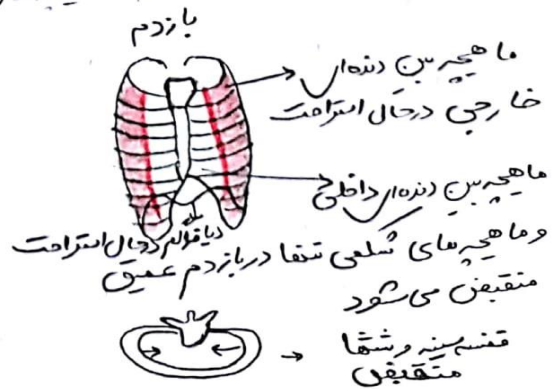 بازدم
ماهیچه بین دنده‌ای
خارجی درحال استراحت
ماهیچه بین دنده‌ای داخلی
دیافراگم درحال استراحت
و ماهیچه های شکمی تنها در بازدم عمیق
منقبض می شود
قفسه سینه و ششها
منقبض